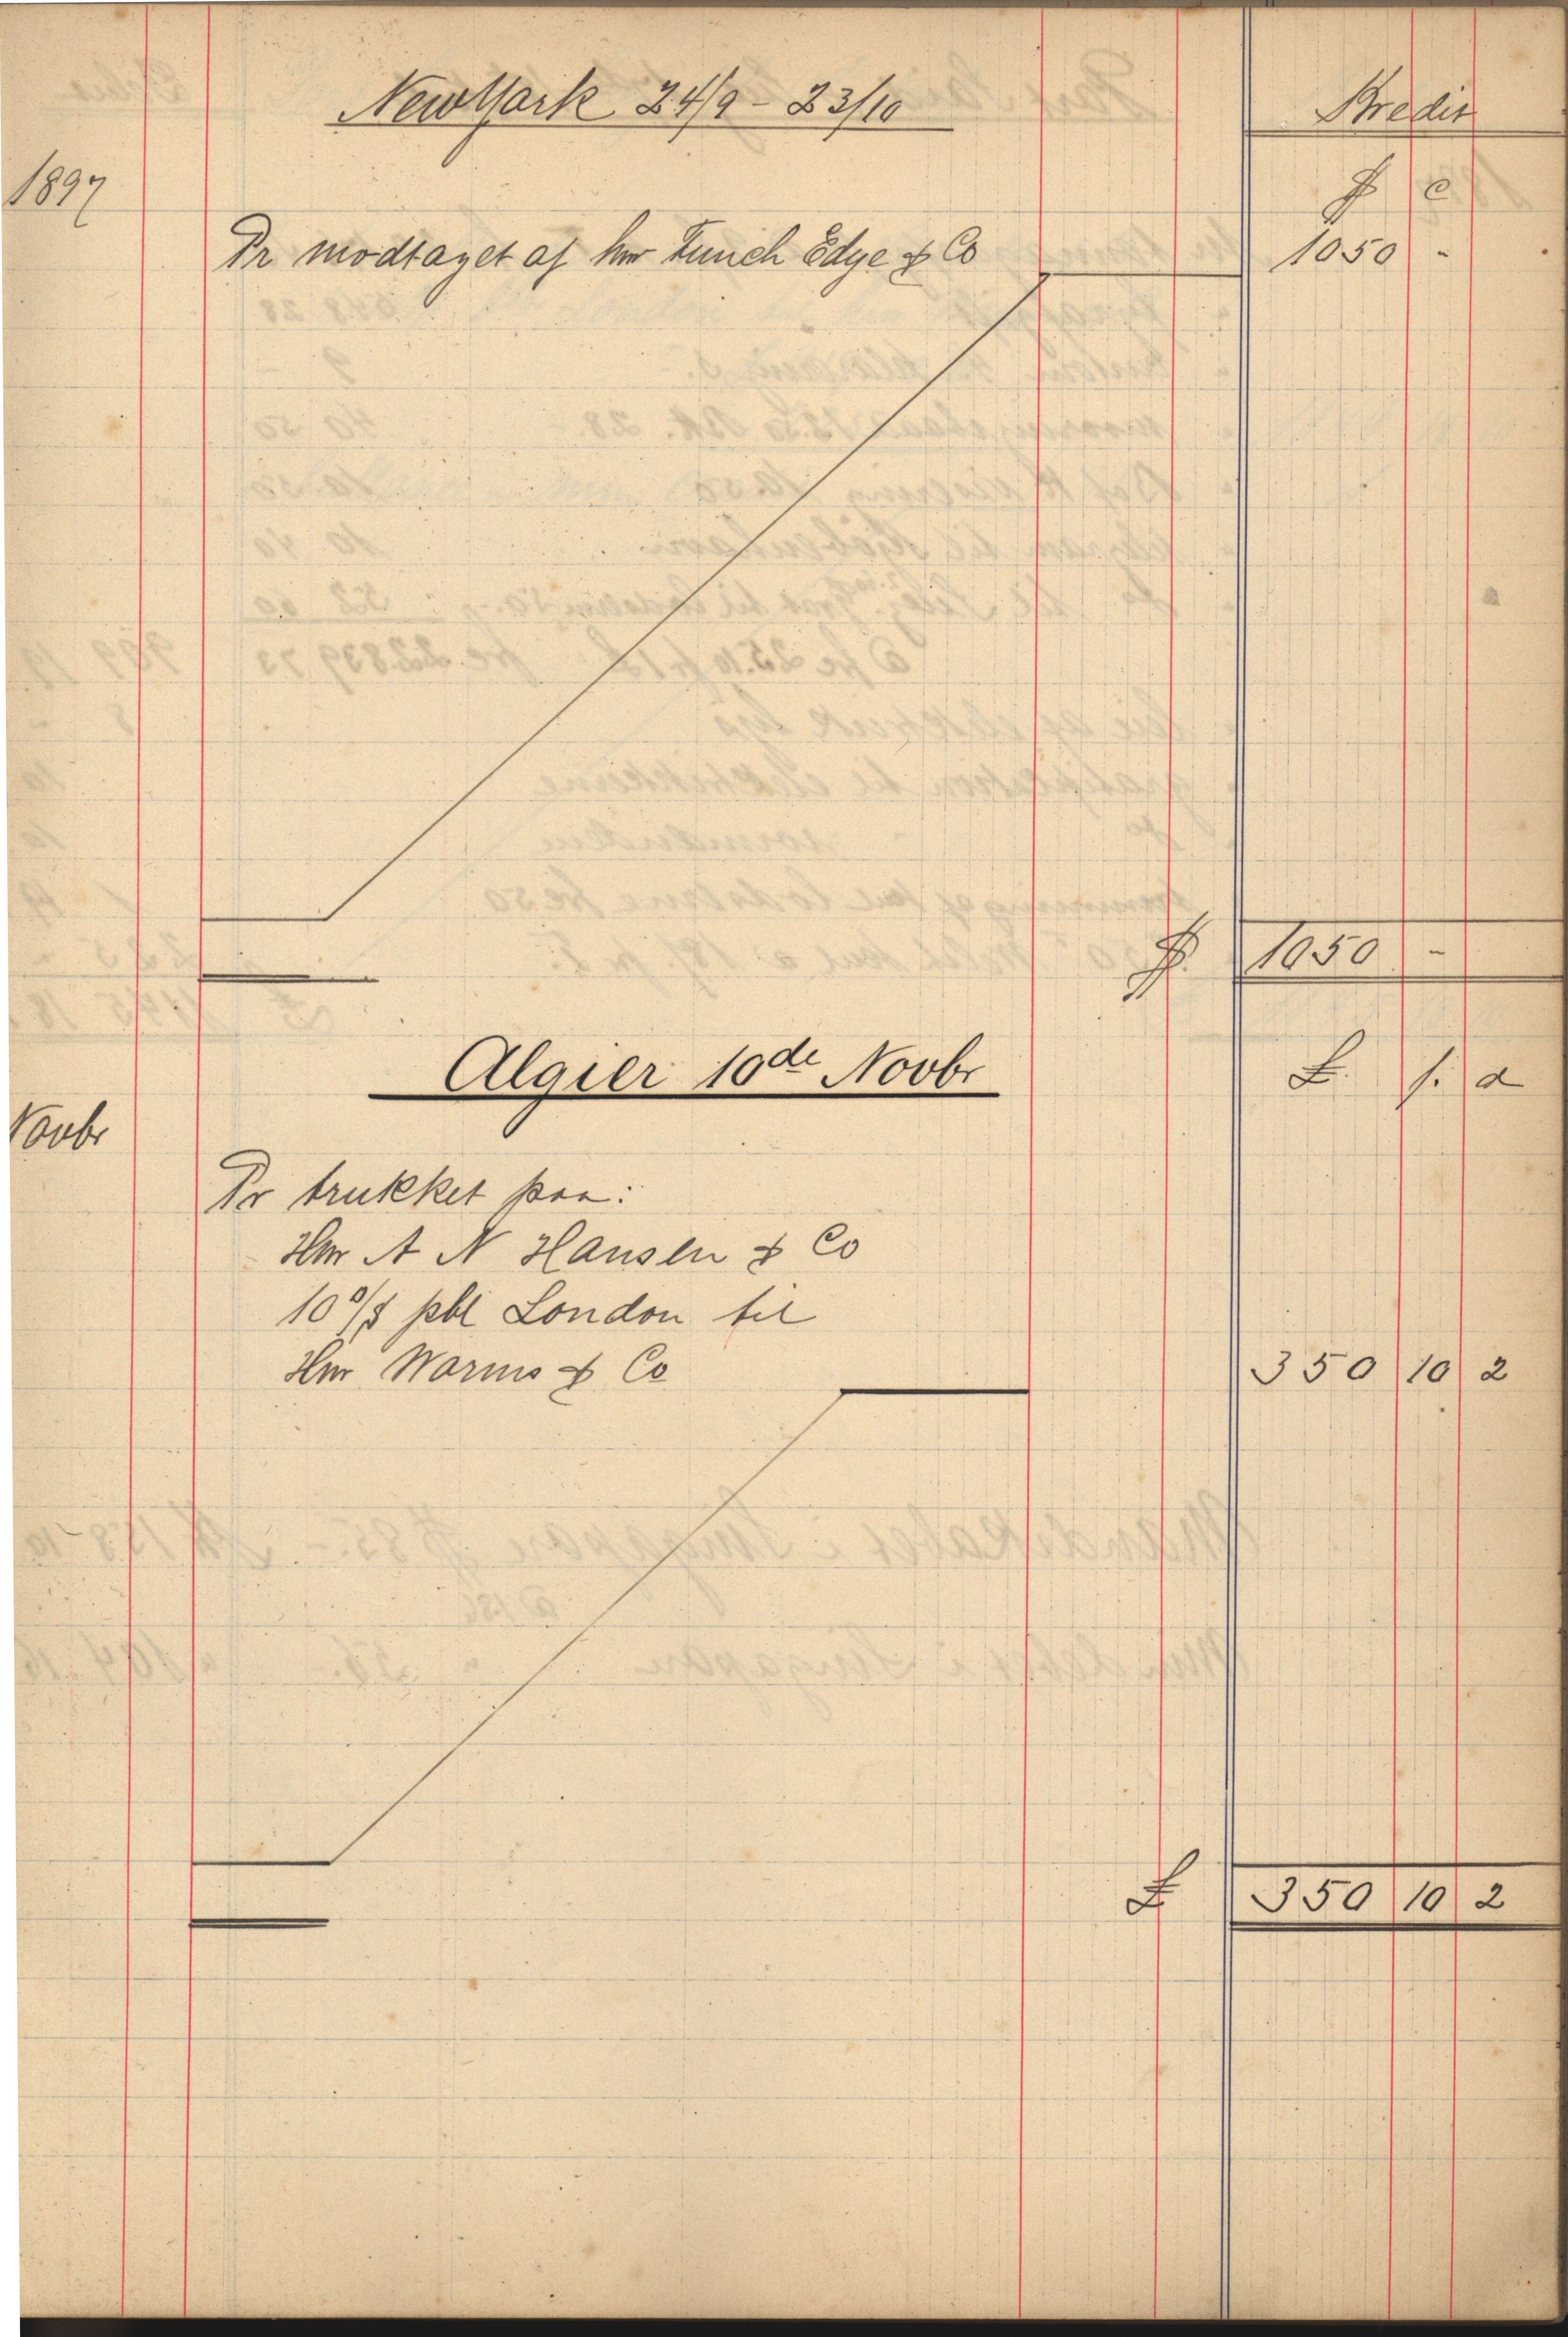 New York 24/9 - 23/10 Kredit
1897 $ c
Pr modtaget af Hrr Funch Edye & Co 1050 -
$ 1050 -
Algier 10de Novbr £. s. d
Novbr
Pr trukket paa:
Hrr A N Hansen & Co
10 d/s pbl London til
Hrr Worms & Co 350 10 2
£ 350 10 2